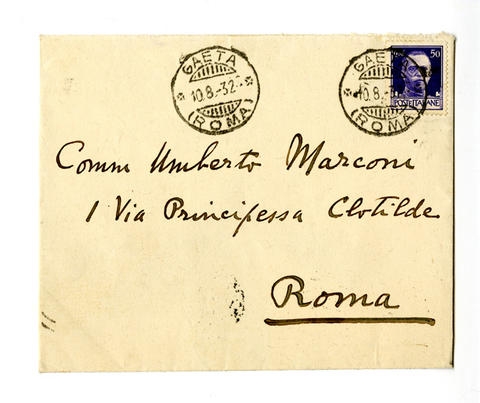 GAETA
10.8.-32.
(ROMA)
GAETA
10.8.-
(ROMA)
50
POSTE ITALIANE
Comm Umberto Marconi
1 Via Principessa Clotilde
Roma